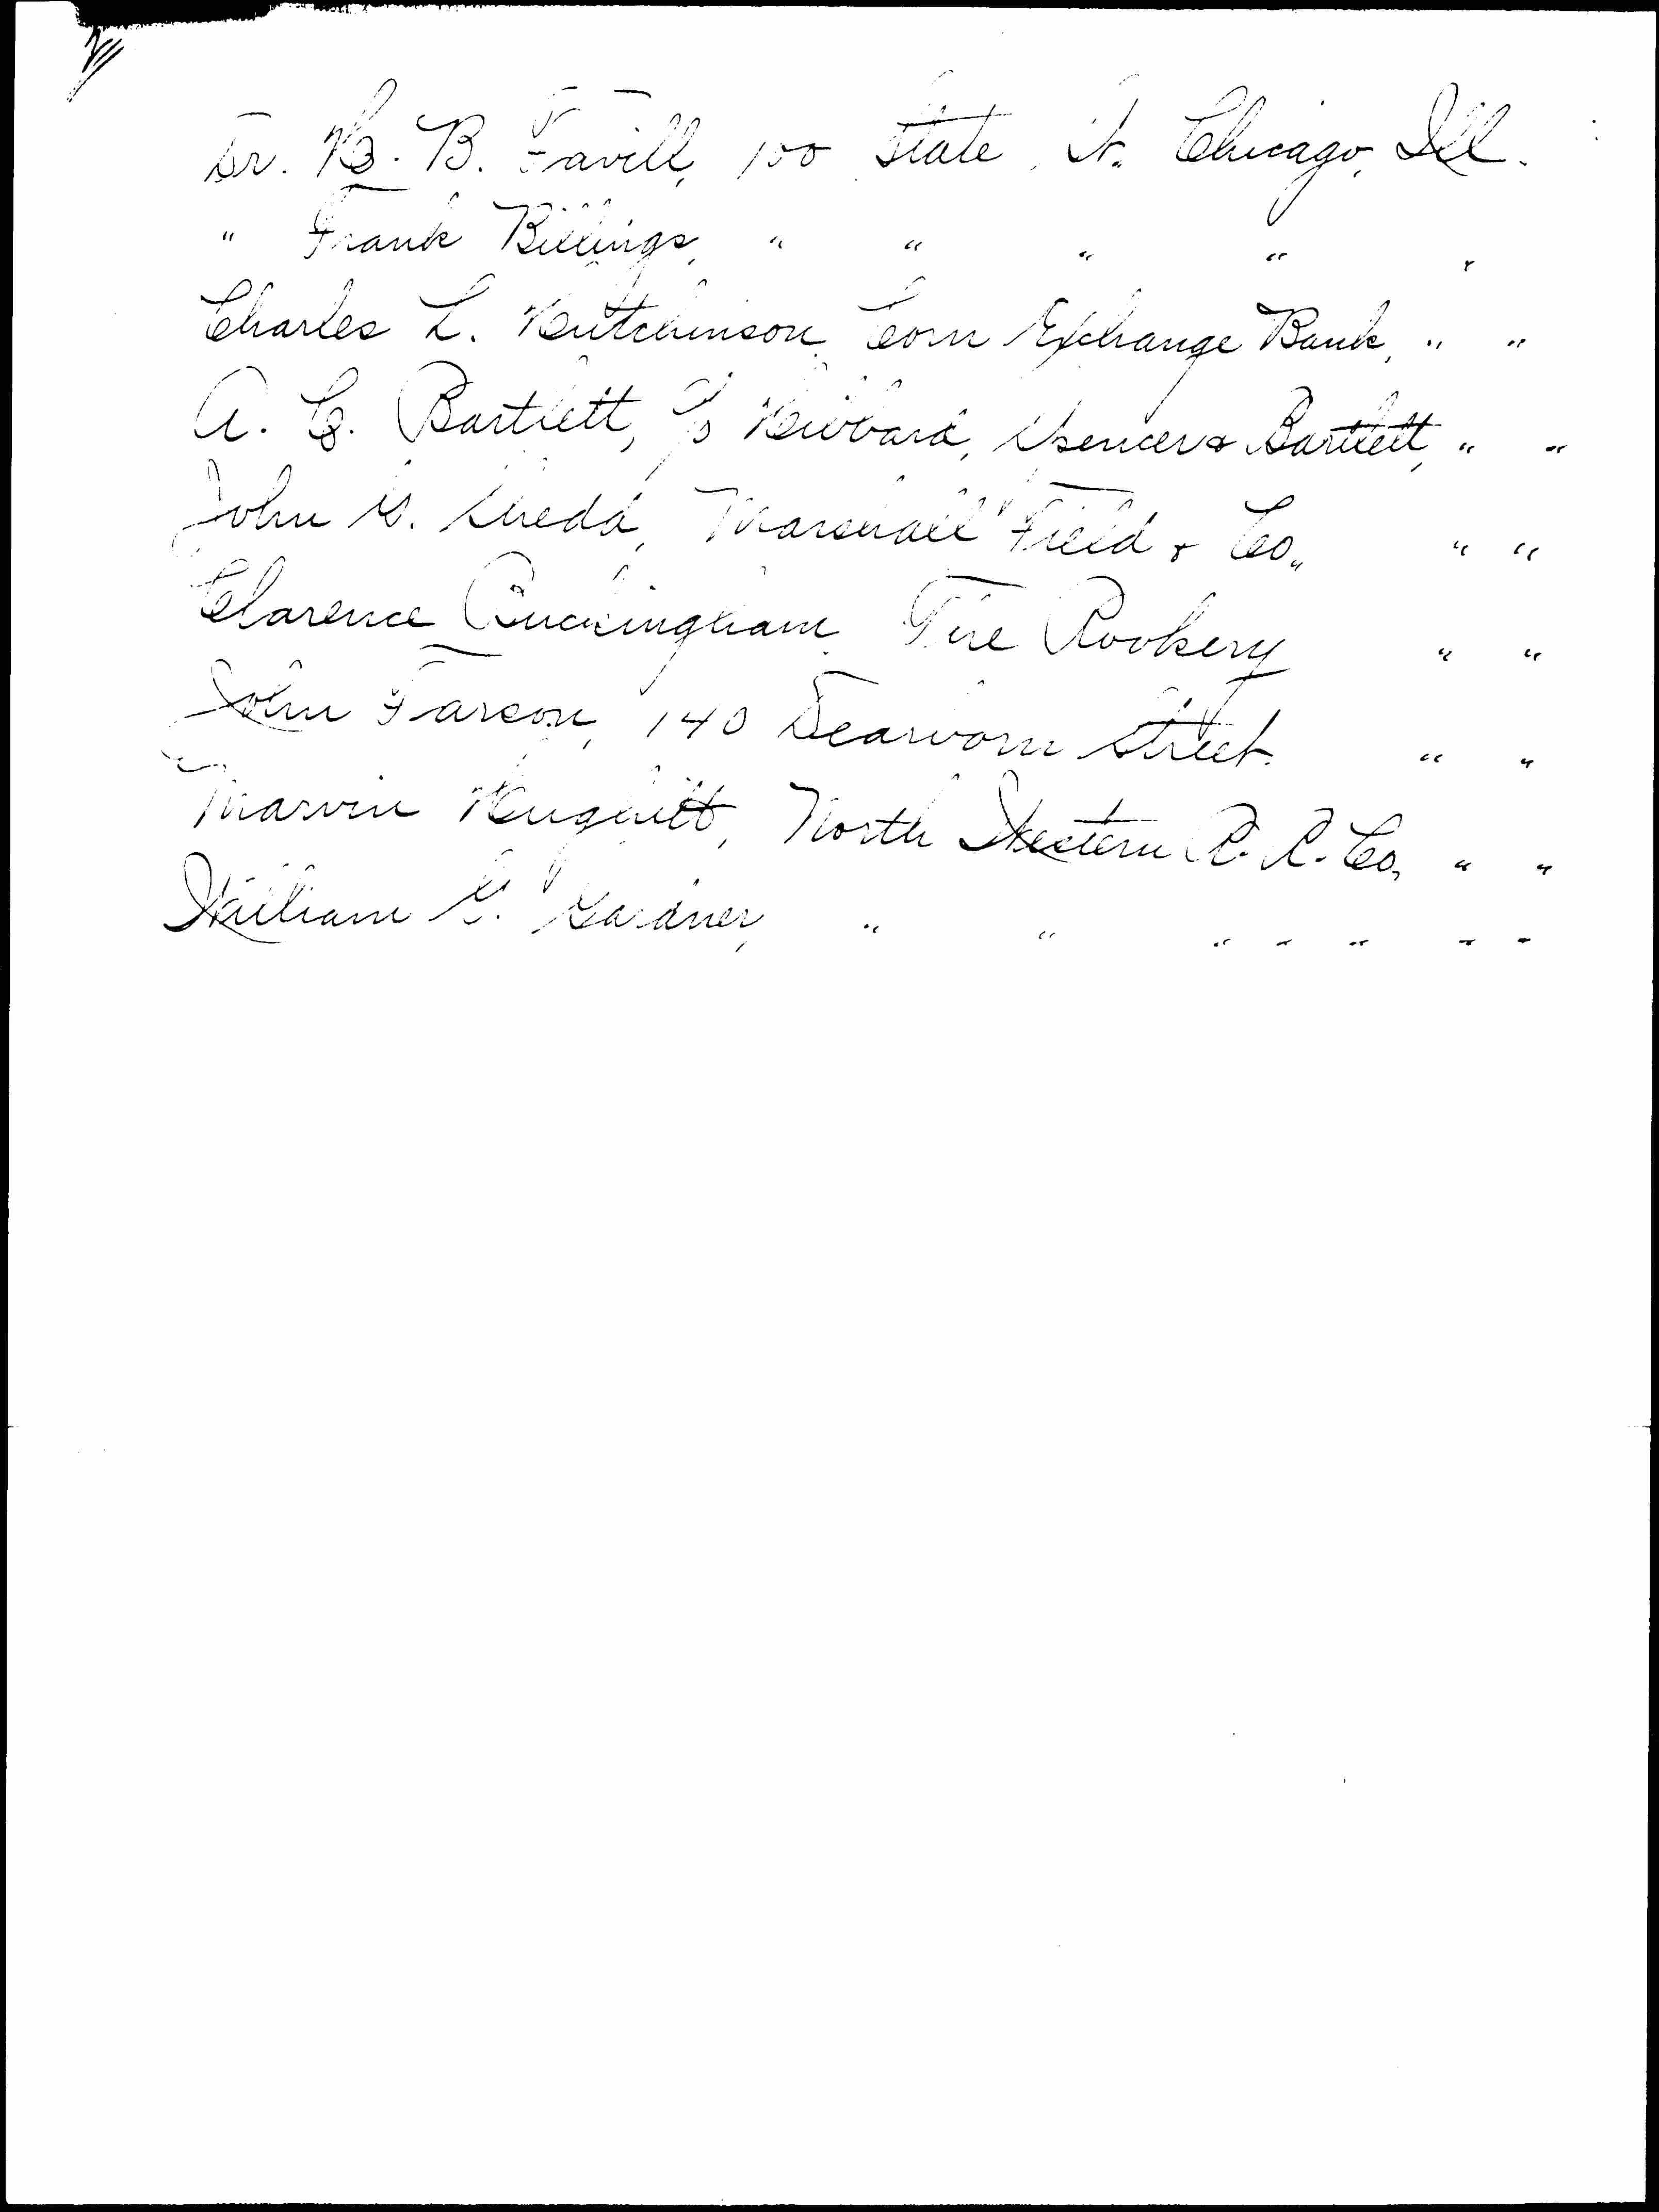 Dr. H. B. Favill, 100 State St. Chicago, Ill.
" Frank Billings, " " " " "
Charles L. Hutchinson, Corn Exchange Bank, " "
A. C. Bartlett, c/o Hibbard, Spencer & Bartlett, " "
John G. Shedd, Marshall Field & Co., " "
Clarence Buckingham, The Rookery " "
John Farson, 140 Dearborn Street. " "
Marvin Hughitt, North Western R. R. Co., " "
William G. Gardner, " " " " " " "